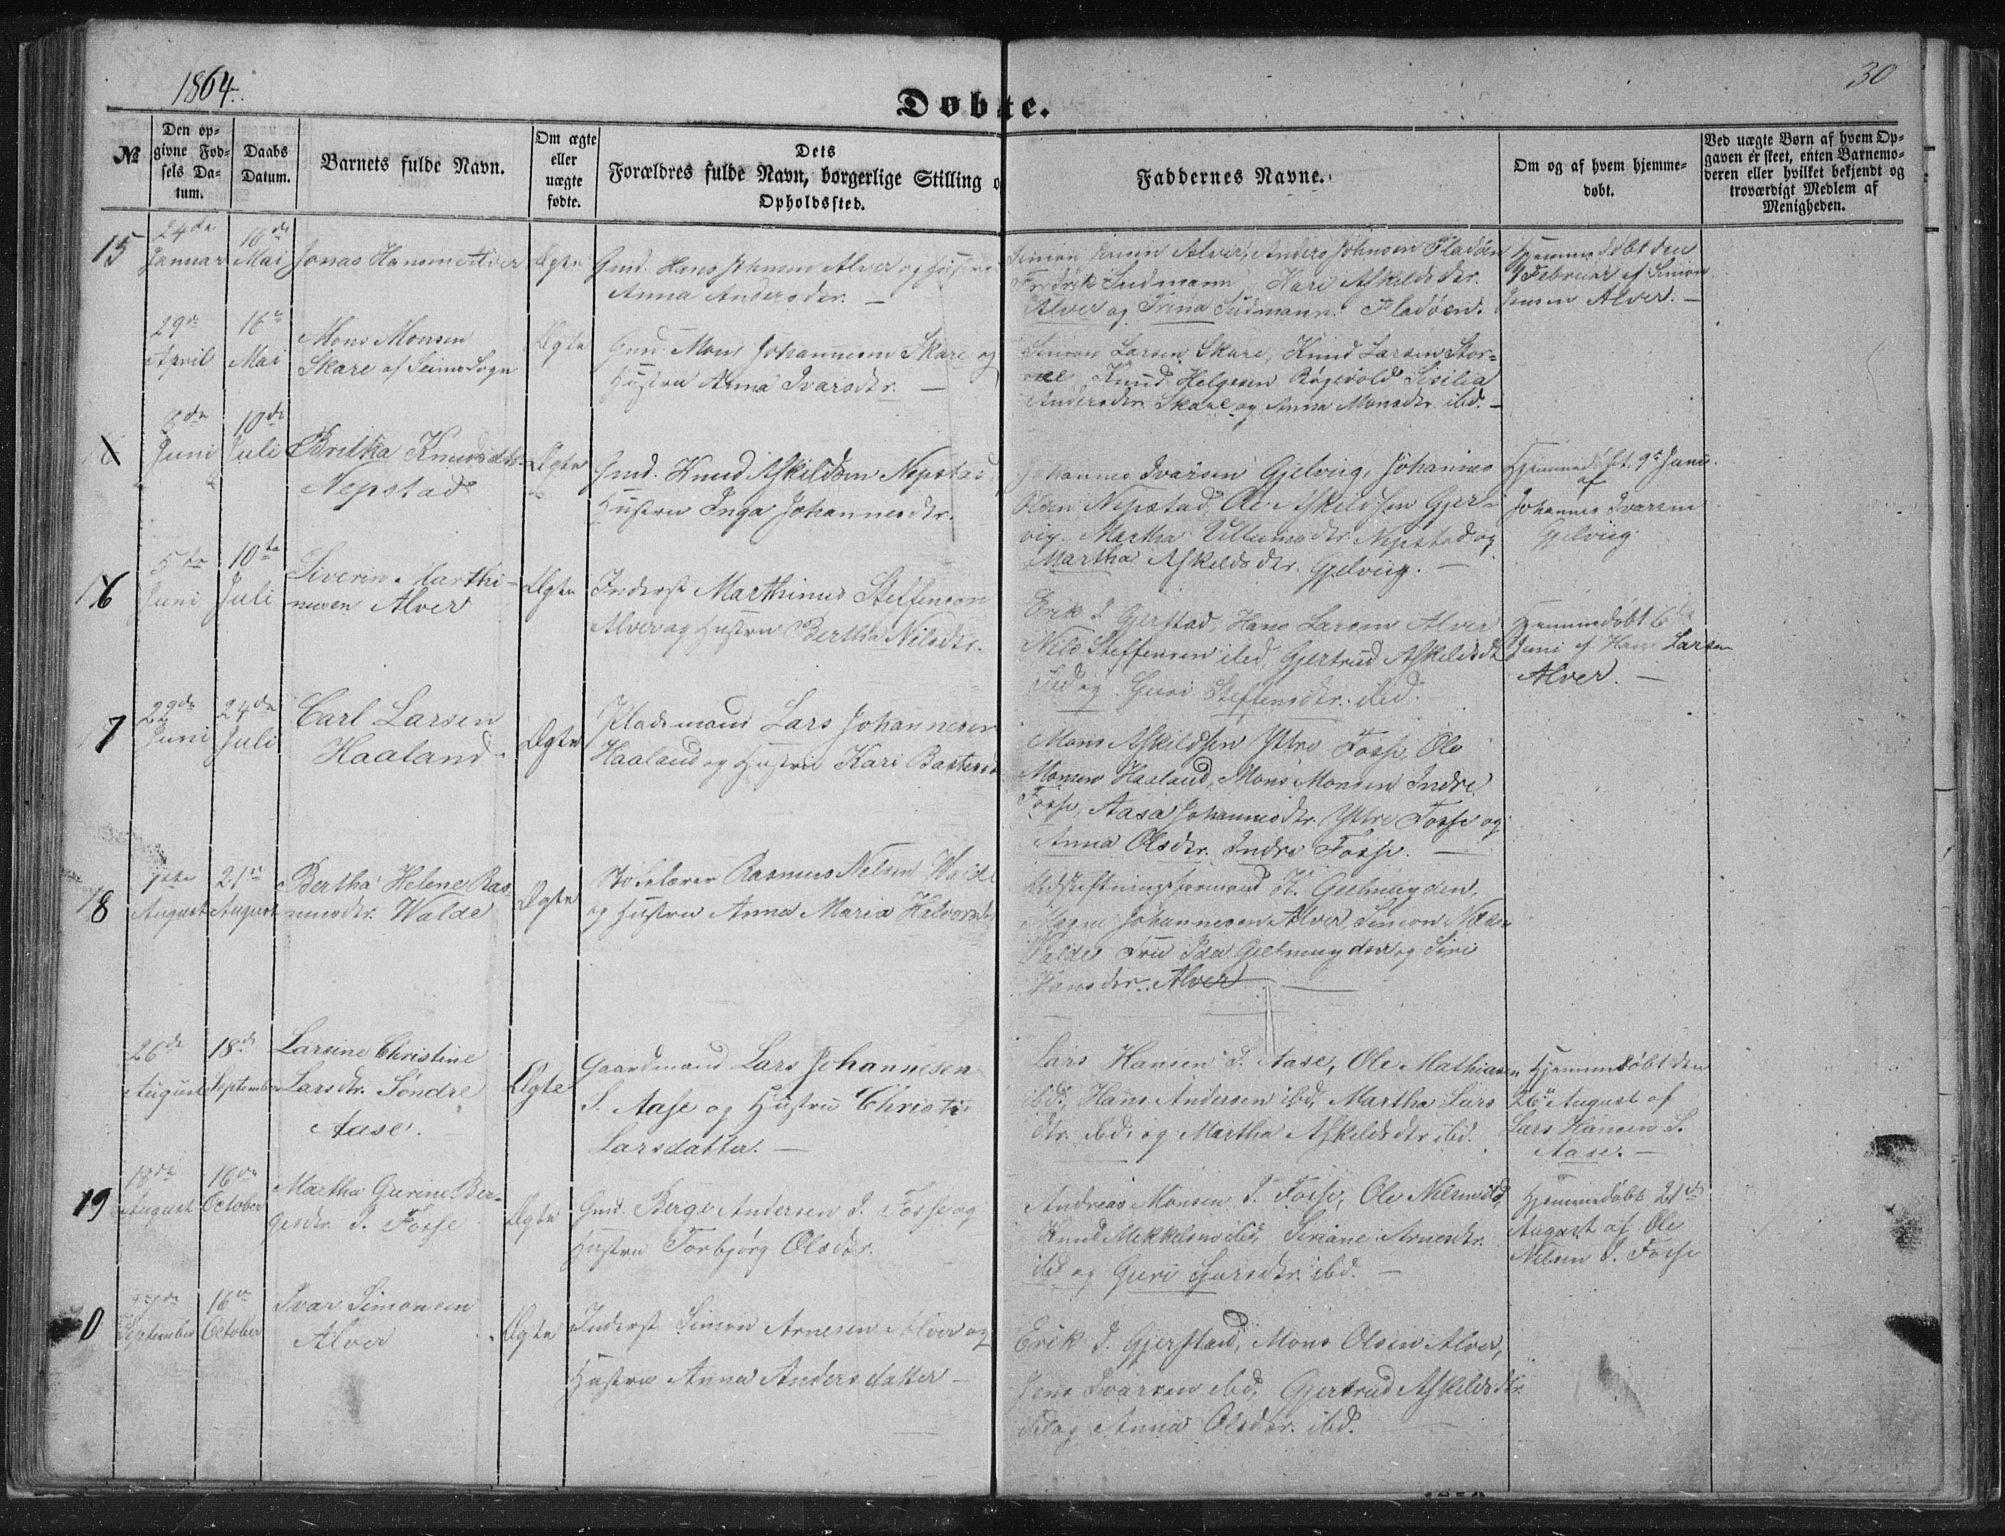 1864.
30
Døbte.
№
Den op-
givne Fød-
sels Da-
tum.
Daabs
Datum.
Barnets fulde Navn.
Om ægte
eller
uægte
fødte.
Dets
Forældres fulde Navn, borgerlige Stilling o
Opholdssted.
Faddernes Navne.
Om og af hvem hjemme-
døbt.
Ved uægte Børn af hvem Op-
gaven er skeet, enten Barnemo-
deren eller hvilket bekjendt og
troværdigt Medlem af
Menigheden.
15
24de
Januar
16de
Mai
Jonas Hansen Alver
Ægte
Gmd. Hans Johnsen Alver og Hustru
Anna Andersdtr. —
Simon Jensen Alver, Anders Johnsen Fladøen
Fredrik Sudmann, Kari Askildsdtr.
Alver og Trina Sudmann Fladøen.
Hjemmedøbt den
Februar af Simon
Jensen Alver. —
29de
April
16de
Mai
Mons Monsen
Skare af Seims Sogn
Ægte
Gmd. Mons Johannesen Skare og
Hustru Anna Ivarsdtr. —
Simon Larsen Skare, Knud Larsen Stor-
Knud Helgesen Sisilia
Andersdtr. Skare og Anna Monsdtr. ibd. —
8de
Juni
10de
Juli
Britha Knudsdtr.
Nepstad
Ægte
Gmd. Knud Askildsen Nepstad
Hustru Inga Johannesdtr.
Johannes Ivarsen Gjelvig, Johannes
Nepstad, Ole Askildsen Gjel-
vig, Martha Nepstad og
Martha Askildsdtr. Gjelvig. —
Hjemmedøbt 9de Juni
af
Johannes Ivarsen
Gjelvig
16
5te
Juni
10te
Juli
Siverin Marthi-
nusen Alver
Ægte
Inderst Marthinus Steffenson
Alver og Hustru Bertha Nilsdtr.
Erik I. Gjerstad, Hans Larsen Alver
Nils Steffensen ibd, Gjertrud Askildsdtr
ibd og Guri Steffensdtr. ibd.
Hjemmedøbt 6te
Juni af Hans Larsen
Alver. —
17
22de
Juni
24de
Juli
Carl Larsen
Haaland
Ægte
Pladsmand Lars Johannesen
Haaland og Hustru Kari
Mons Askildsen Yttre Fosse, Ole
Monsen Haaland, Mons Monsen Indre
Fosse, Aasa Johannesdtr. Yttre Fosse og
Anna Olsdtr. Indre Fosse. —
18
1ste
August
21de
August
Bertha Helene Ras-
musdtr. Walde
Ægte
Skolelærer Rasmus Nelsen Walde
og Hustru Anna Maria Halvorsdtr
Udskiftningsformand H. Geelmuyden,
Mogne Johannesen Alver, Simon
Walde Fru Ida Geelmuyden og Siri
Hansdtr. Alver
26de
August
18de
September
Larsine Christine
Larsdtr. Søndre
Aase.
Ægte
Gaardmand Lars Johannesen
S. Aase og Hustru Christi
Larsdatter. —
Lars Hansen S. Aase, Ole Mathiasen
ibd, Hans Andersen ibd, Martha Lars
dtr. ibd. og Martha Askildsdtr ibd.
Hjemmedøbt den
26de August af
Lars Hansen S.
Aase. —
19
18de
August
16de
October
Martha Gurine Ber-
gesdtr. I. Fosse
Ægte
Gmd. Berge Andersen I. Fosse og
Hustru Torbjørg Olsdtr.
Andreas Monsen I. Fosse, Ole Nilsen ibd,
Knud Mekkelsen ibd, Siriane Arnesdtr.
ibd og Guri Sjursdtr. ibd. —
Hjemmedøbt 21de
August af Ole
Nilsen I. Fosse
0
September
16de
October
Ivar Simonsen
Alver
Ægte
Inderst Simon Arnesen Alver og
Hustru Anna Andersdatter —
Erik I. Gjerstad, Mons Olsen Alver,
Jens Ivarsen ibd, Gjertrud Askildsdtr.
ibd og Anna Olsdtr. ibd.